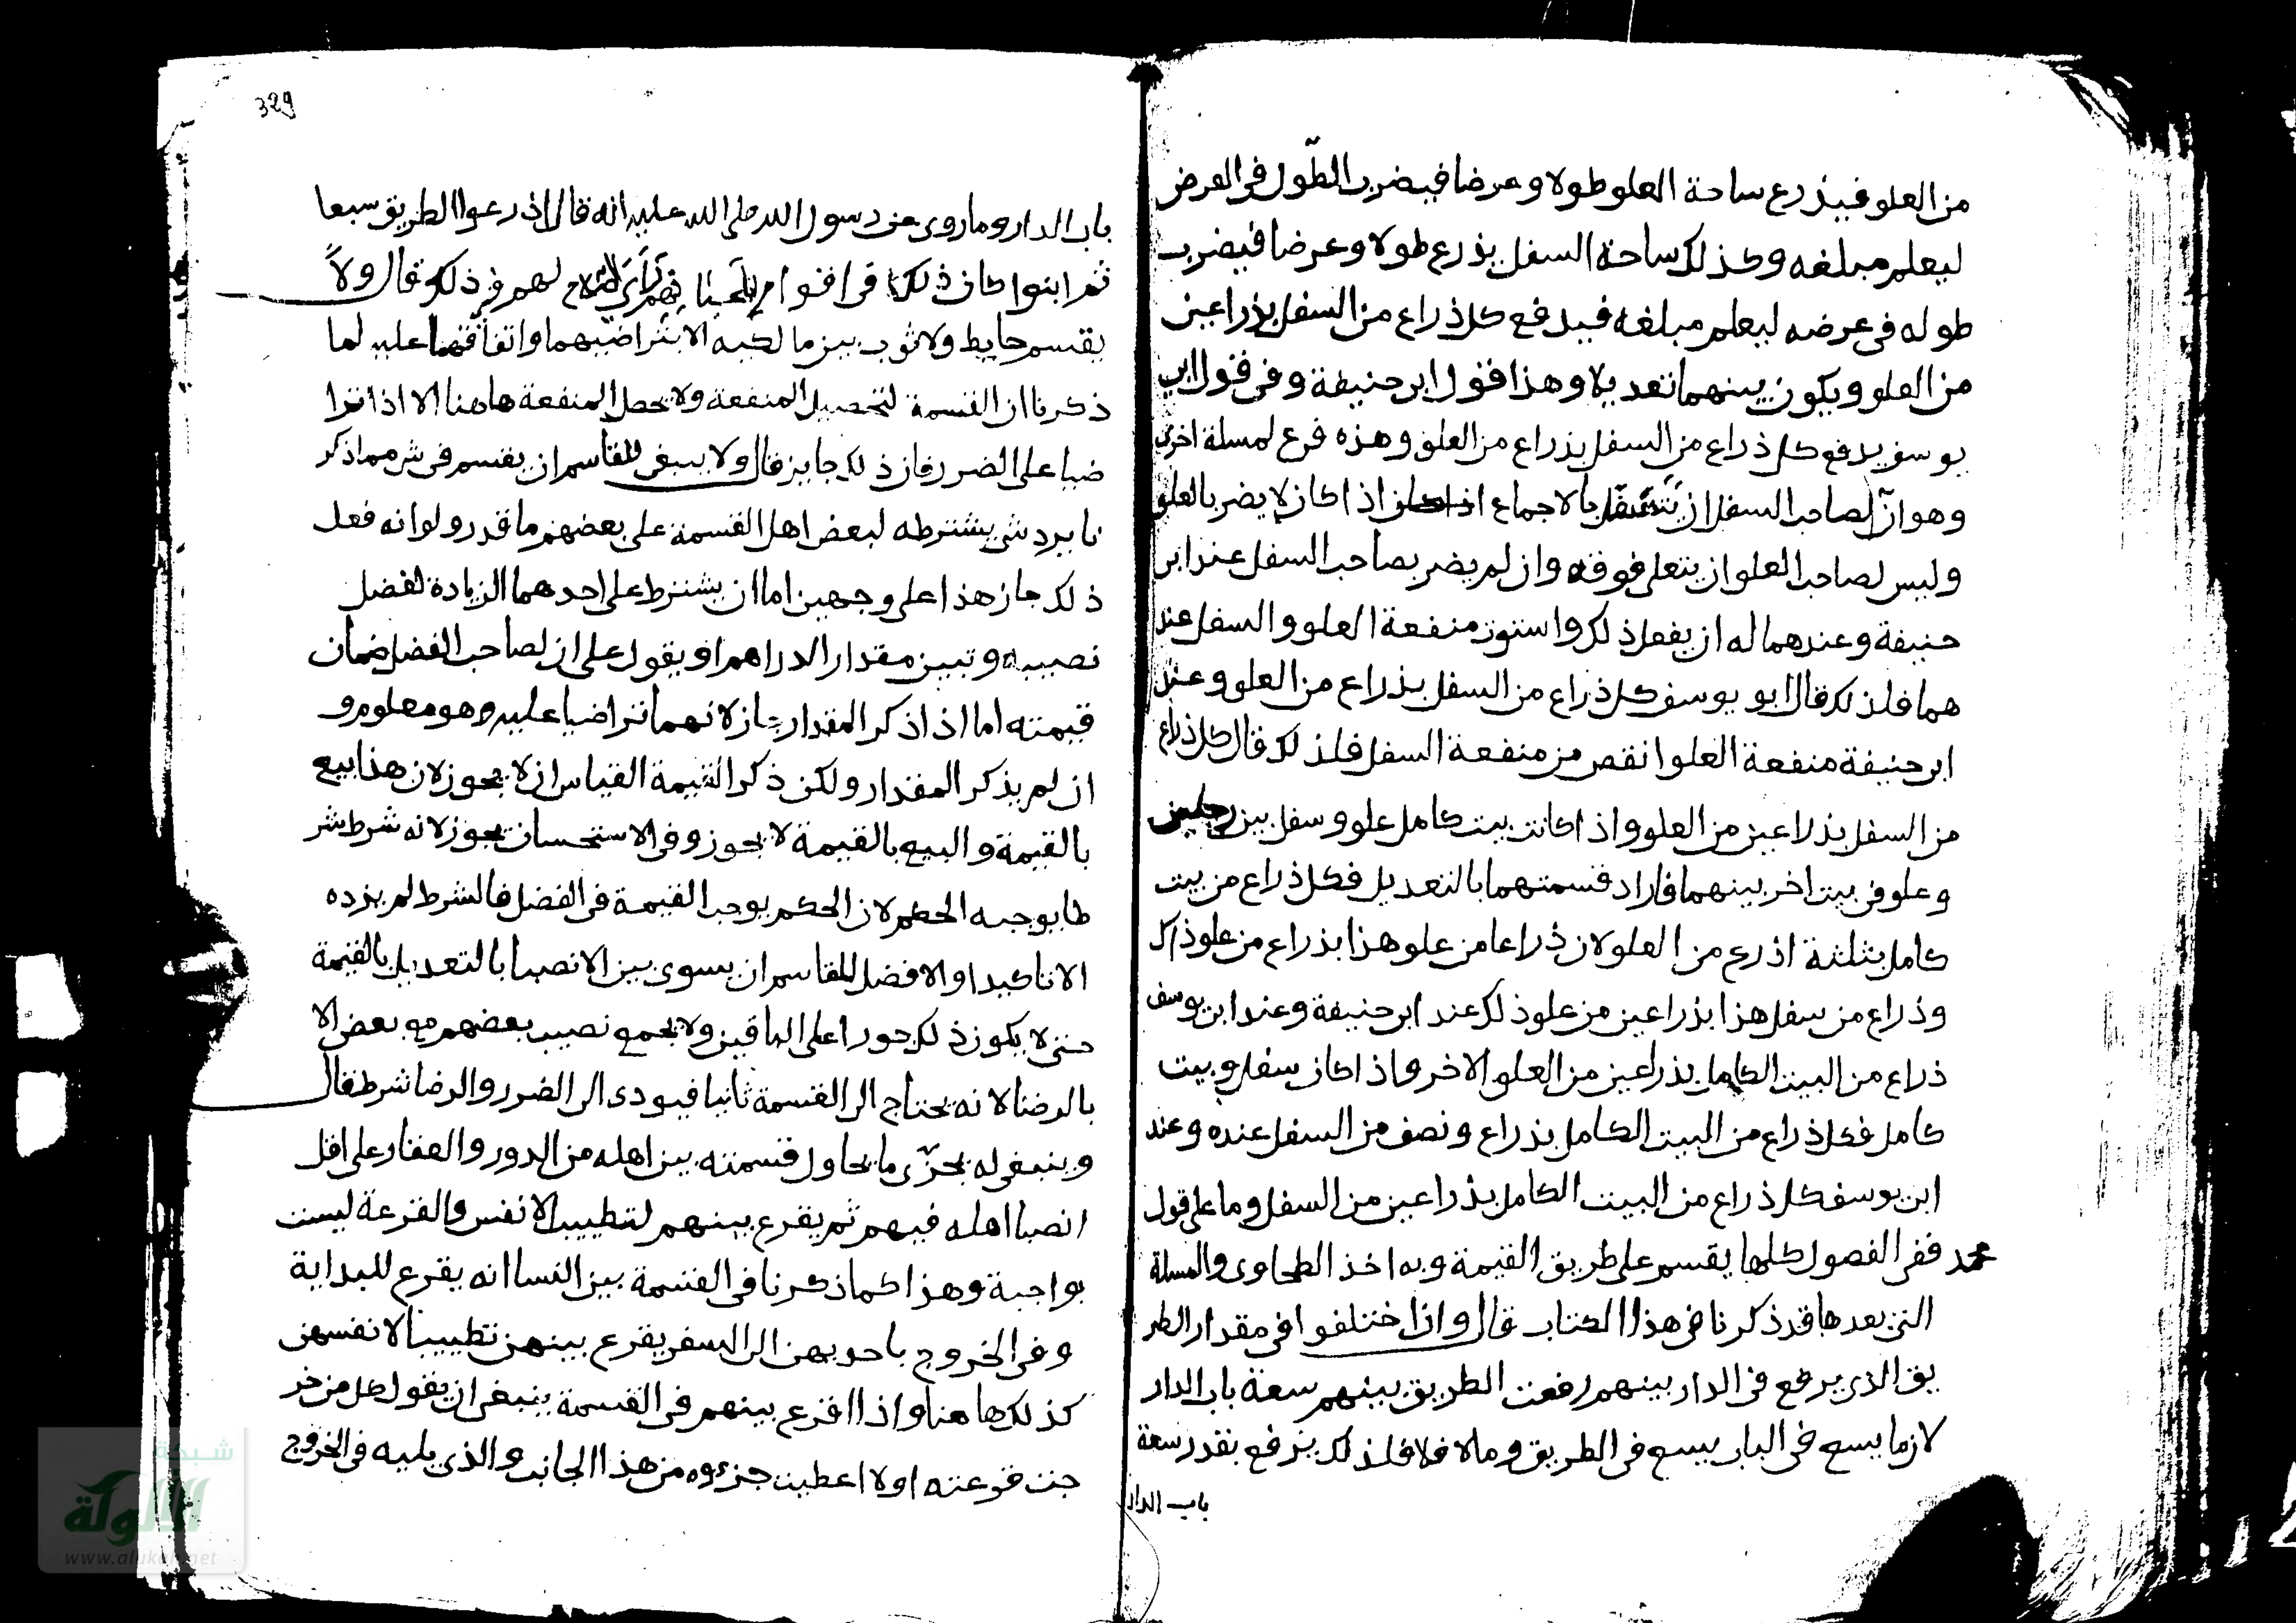 من العلو فيذرع ساحة العلو طولا وعرضا فيضرب الطّول في العرض
ليعلم مبلغه وكذلك ساحة السفل يذرع طولا وعرضا فيضرب
طوله في عرضه ليعلم مبلغه فيدفع كل ذراع من السفل بذراعين
من العلو ويكون بينهما تعديلا وهذا قول ابي حنيفة وفي قول ابي
يوسف يدفع كل ذراع من السفل بذراع من العلو وهذه فرع لمسلة اخرى
وهو انّ لصاحب السفل ان يتسفل بالاجماع اذا كان لا يضر بالعلو
وليس لصاحب العلو ان يتعلى فوقه وان لم يضر بصاحب السفل عند ابي
حنيفة وعندهما له ان يفعل ذلك واستوت منفعة العلو والسفل عند
هما فلذلك قال ابو يوسف كل ذراع من السفل بذراع من العلو وعند
ابي حنيفة منفعة العلو انقص من منفعة السفل فلذلك قال كل ذراع
من السفل بذراعين من العلو واذا كانت بيت كامل علو وسفل بين رجلين
وعلو في بيت اخر بينهما فاراد قسمتهما بالتعديل فكل ذراع من بيت
كامل بثلثة اذرع من العلو لان ذراعا من علو هذا بذراع من علو ذاك
وذراع من سفل هذا بذراعين من علو ذلك عند ابي حنيفة وعند ابي يوسف
ذراع من البيت الكامل بذراعين من العلو الاخر واذا كان سفل وبيت
كامل فكل ذراع من البيت الكامل بذراع ونصف من السفل عنده وعند
ابي يوسف كل ذراع من البيت الكامل بذراعين من السفل وما على قول
محمد ففي الفصول كلها يقسم على طريق القيمة وبه اخذ الطحاوى والمسلة
التي بعدها قد ذكرنا في هذا الكتاب قال واذا ختلفوا في مقدار الطر
يق الذي يرفع في الدار بينهم رفعت الطريق بينهم سعة باب الدار
لان ما يسع في الباب يسع في الطريق وما لا فلا فلذلك يرفع بقدر سعة
باب الدار
329
باب الدار وما روى عن رسول الله صلى الله عليه انه قال اذرعوا الطريق سبعا
ثم ابنوا كان ذلك لهم في ذلك قال ولاً
يقسم حايط ولا ثوب بين مالكيه الا بتراضيهما واتفاقهما عليه لما
ذكرنا ان القسمة لتحصيل المنفعة ولا يحصل المنفعة هاهنا الا اذا ترا
ضيا على الضرر فان ذلك جايز قال ولا ينبغي للقاسم ان يقسم في شي مما ذكر
نا برد شي يشترطه لبعض اهل القسمة على بعضهم ما قدر ولو انه فعل
ذلك جاز هذا على وجهين اما ان يشترط على احدهما الزيادة لفضل
نصيبه وتبين مقدار الدراهم او يقول على ان لصاحب الفضل ضمان
قيمته اما اذا ذكر المقدار جاز لانهما تراضيا عليه وهو معلوم و
ان لم يذكر المقدار ولكن ذكر القيمة القياس ان لا يجوز لان هذا بيع
بالقيمة والبيع بالقيمة لا يجوز وفي الاستحسان يجوز لانه شرط شر
طا يوجبه الحكم لان الحكم يوجب القيمة في الفضل فالشرط لم يزده
الا تاكيدا والافضل للقاسم ان يسوى بين الانصبا بالتعديل بالقيمة
حتى لا يكون ذلك جورا على الباقين ولا يجمع نصيب بعضهم مع بعض الا
بالرضا لانه يحتاج الى القسمة ثانيا فيودى الى الضرر والرضا شرط قال
وينبغي له يجزّى ما يحاول قسمته بين اهله من الدور والعقار على اقل
انصبا اهله فيهم ثم يقرع بينهم لتطييب الانفس والقرعة ليست
بواجبة وهذا كما ذكرنا في القسمة بين النسا انه يقرع للبداية
وفي الخروج باحديهن الى السفر يقرع بينهن تطييبا لانفسهن
كذلك هاهنا واذا اقرع بينهم في القسمة ينبغي ان يقول كل من خر
جت قرعته اولا اعطيت جزءوه من هذا الجانب والذي يليه في الخروج
شبكة
الألوكة
www.alukah.net